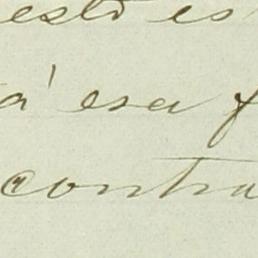 esto es
a' esa f
contra